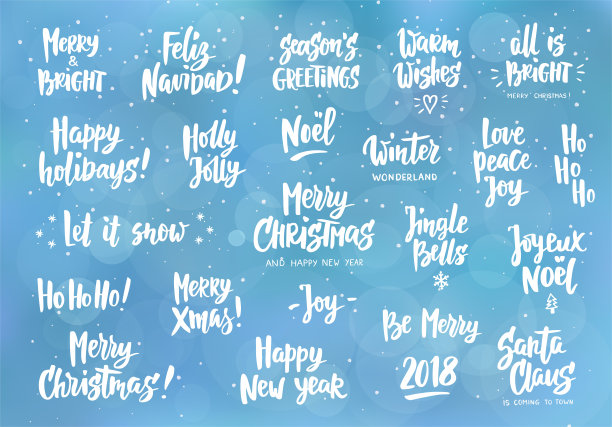 Merry
&
BRIGHT
Feliz
NAVIDAD!
season's
GREETINGS
WARM
WISHES
all is
BRIGHT
MERRY CHRISTMAS!
Happy
holidays!
Holly
Jolly
Noël
Winter
WONDERLAND
Love
peace
Joy
Ho
Ho
Ho
Let it snow
Merry
CHRISTMAS
AND HAPPY NEW YEAR
Jingle
Bells
Joyeux
NOËL
Ho Ho Ho!
Merry
Xmas!
-Joy-
Be Merry
Merry
Christmas!
Happy
New year
2018
Santa
Claus
IS COMING TO TOWN